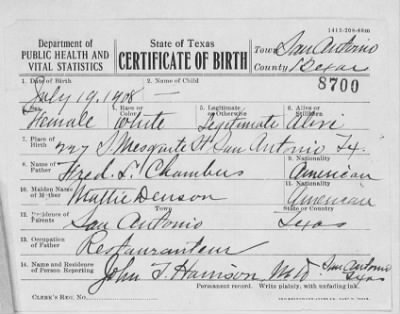 1413-208-60m
Department of
PUBLIC HEALTH AND
VITAL STATISTICS
State of Texas
CERTIFICATE OF BIRTH
Town San Antonio
County Bexar
8700
1. Date of Birth
2. Name of Child
July 19, 1908 —
Sex
4. Race or Color
5. Legitimate or Otherwise
6. Alive or Stillborn
Female White Legitimate Alive
7. Place of Birth
227 S. Mesquite St. San Antonio Tx.
8. Name of Father
9. Nationality
Fred L. Chambers American
10. Maiden Name of Mother
11. Nationality
Mattie Denson American
12. Residence of Parents
Town
State or Country
San Antonio Texas
13. Occupation of Father
Restauranteur
14. Name and Residence of Person Reporting
John T. Harrison, M.D. San Antonio Texas
CLERK'S REG. NO.
Permanent record. Write plainly, with unfading ink.